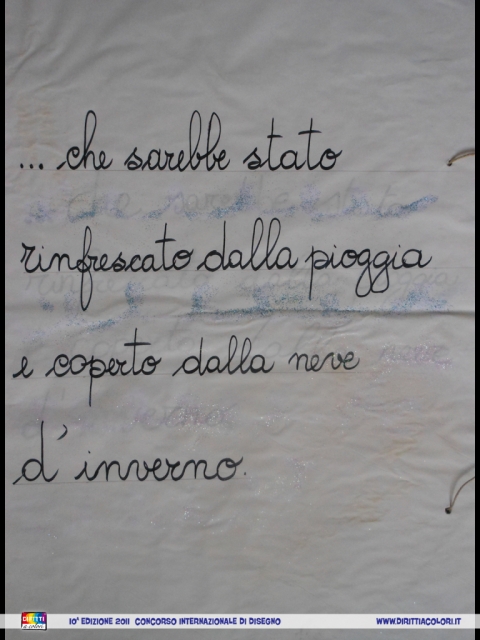 ... che sarebbe stato
rinfrescato dalla pioggia
e coperto dalla neve
d'inverno.
DIRITTI a colori 10ª EDIZIONE 2011 CONCORSO INTERNAZIONALE DI DISEGNO WWW.DIRITTIACOLORI.IT